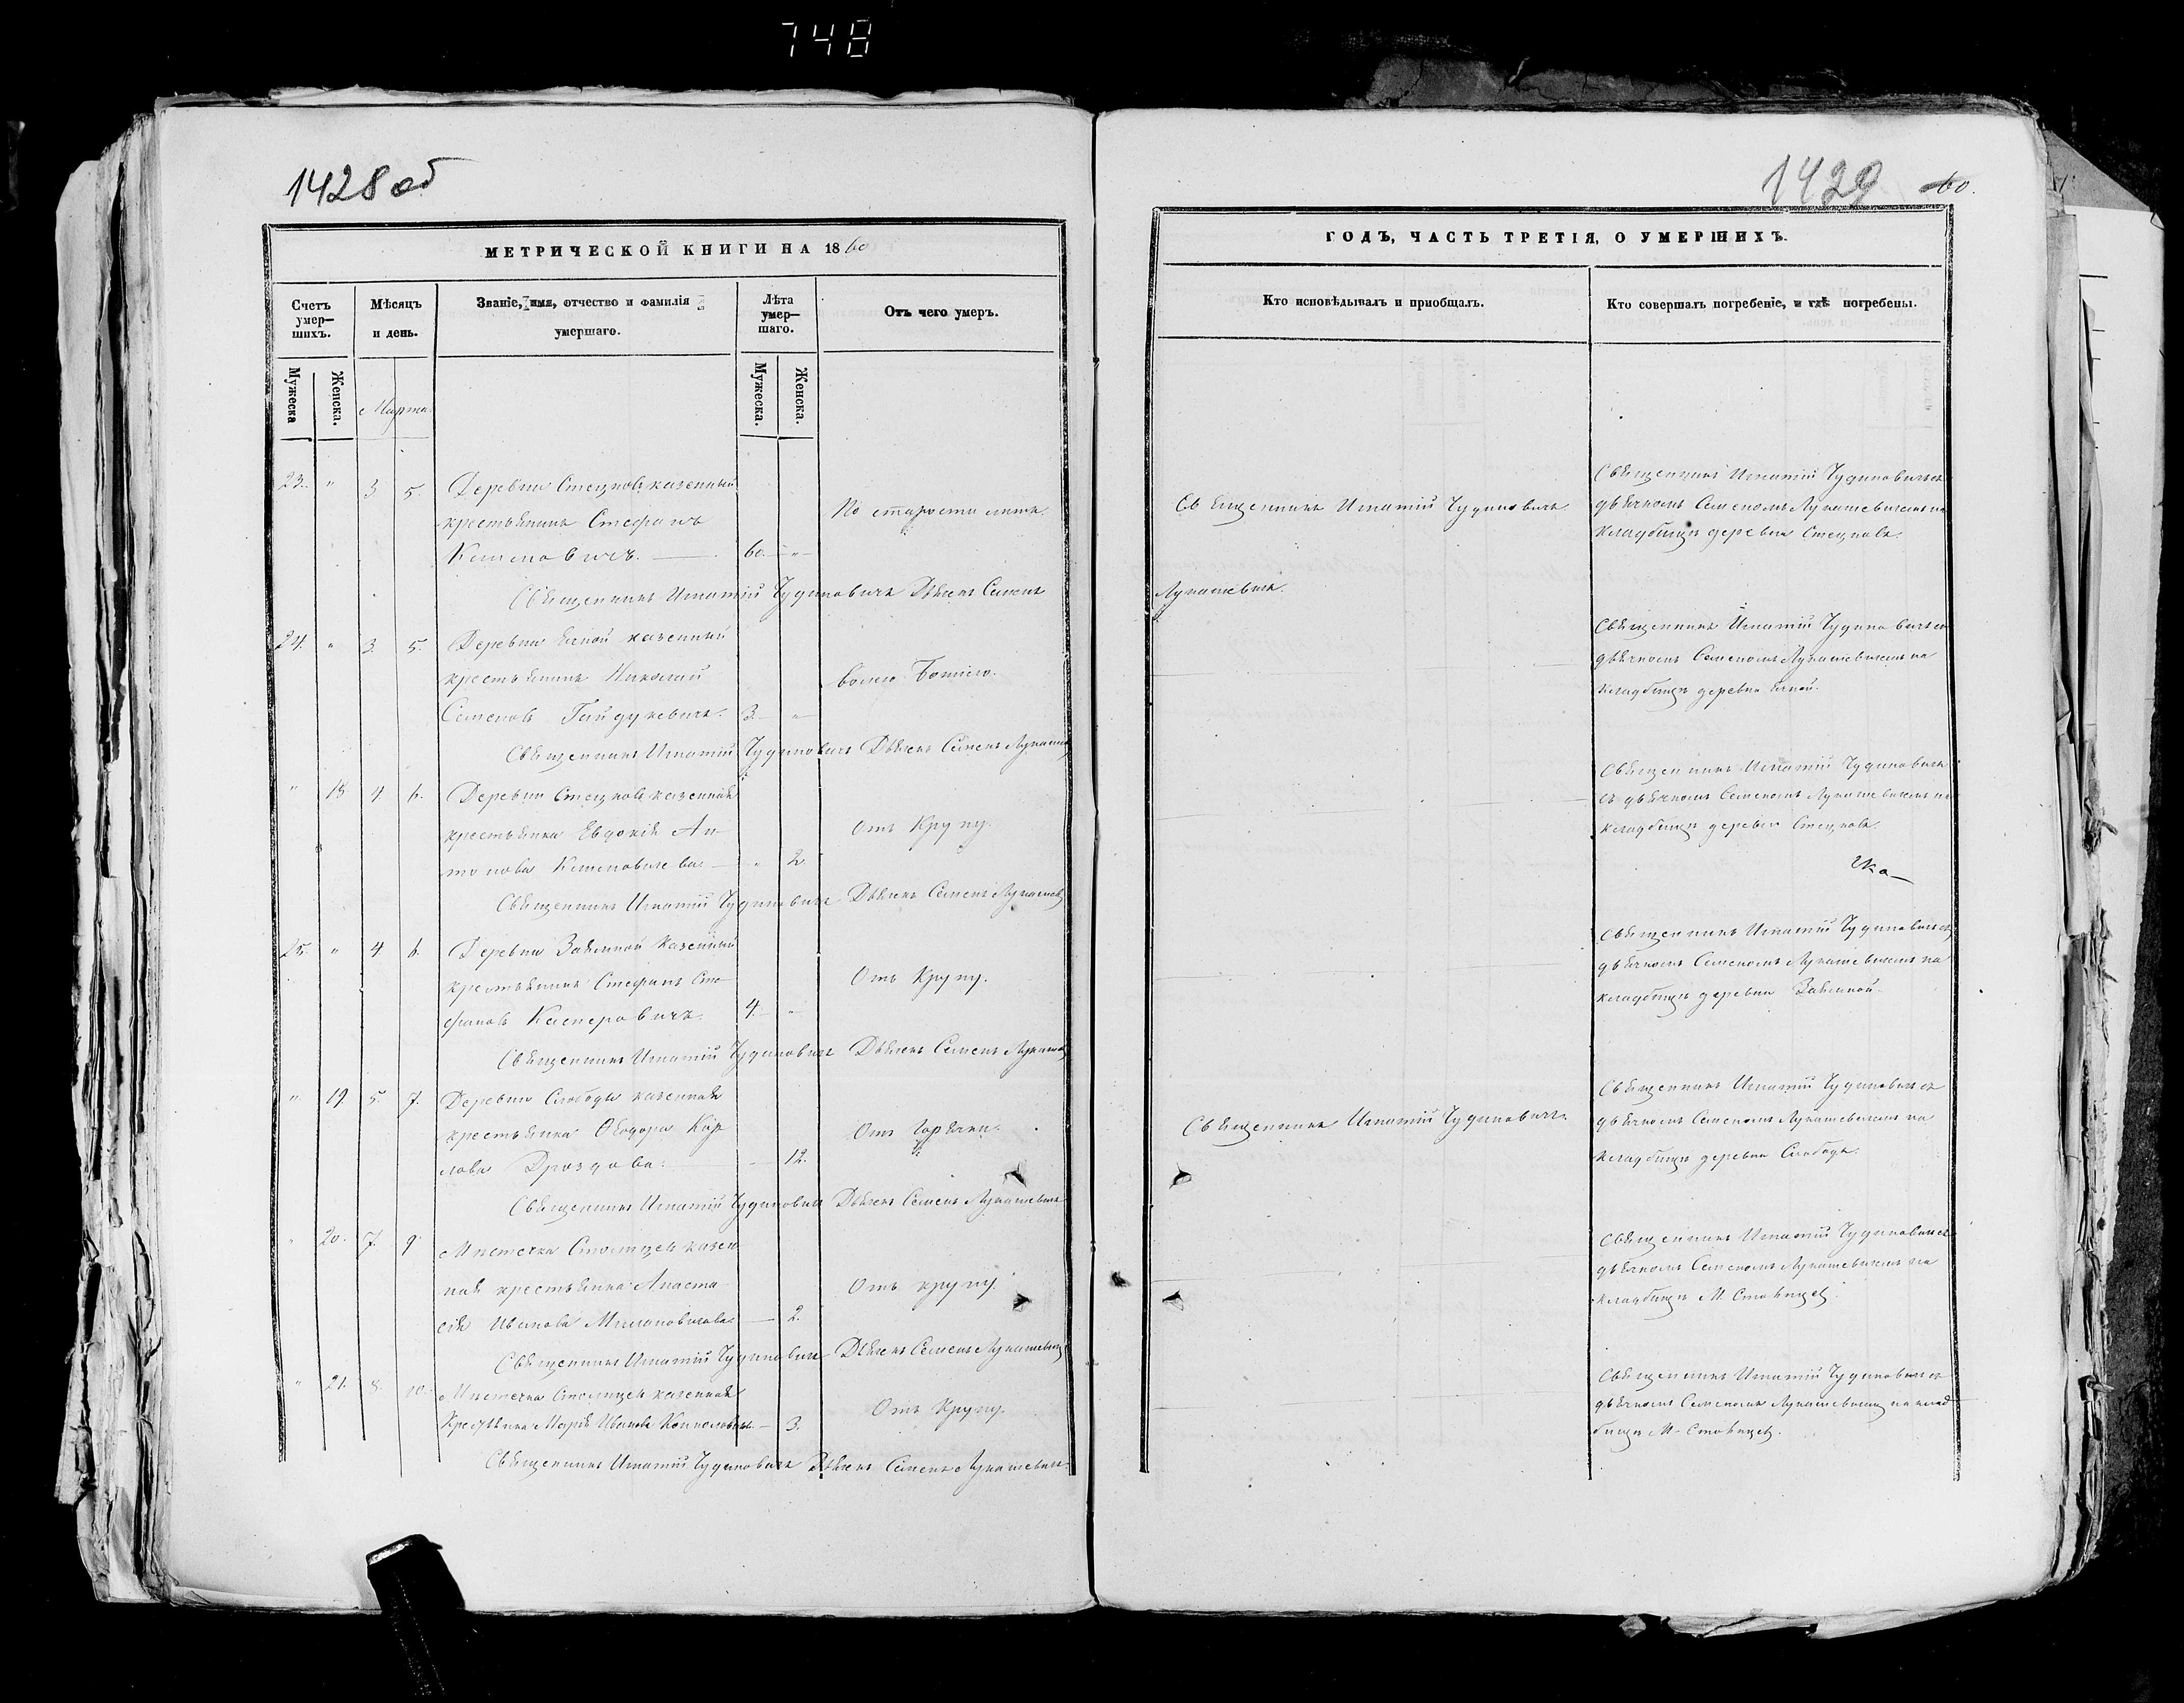 748
1428 об
МЕТРИЧЕСКОЙ КНИГИ НА 1860
Счетъ умер-шихъ.
Мѣсяцъ и день.
Званіе, имя, отчество и фамилія умершаго.
Лѣта умер-шаго.
Отъ чего умеръ.
Мужеска
Женска.
Марта.
Мужеска.
Женска.
23. " 3 5. Деревни Стецковъ казенный
крестьянинъ Стефанъ
По старости лѣтъ.
60 "
Священникъ Игнатій Чудиновичъ Дьячекъ Семенъ
24. " 3. 5. Деревни казенный
крестьянинъ Николай
волею Божіею.
Семеновъ Гайдукевичъ. 3. "
Священникъ Игнатій Чудиновичъ Дьячекъ Семенъ
" 18 4 6. Деревни Стецковъ казенная
крестьянка Евдокія Ан-
Отъ Крупу.
тонова " 2
Священникъ Игнатій Чудиновичъ Дьячекъ Семенъ
25. " 4. 6. Деревни Заямной Казенный
крестьянинъ Стефанъ Сте-
Отъ Крупу.
фановъ Касперовичъ. 4. "
Священникъ Игнатій Чудиновичъ Дьячекъ Семенъ
" 19 5. 7. Деревни Слободы казенная
крестьянка Ѳеодора Кар
Отъ Горячки.
лова Дроздова. 12.
Священникъ Игнатій Чудиновичъ Дьячекъ Семенъ Лукашевичъ
" 20. 7. 9 Мѣстечка Столпцевъ казен
ная крестьянка Анаста
Отъ крупу.
сія Иванова 2.
Священникъ Игнатій Чудиновичъ Дьячекъ Семенъ Лукашевичъ
" 21. 8. 10. Мѣстечка Столпцевъ казенная
Крестьянка Марія Иванова 3.
Отъ Крупу.
Священникъ Игнатій Чудиновичъ Дьячекъ Семенъ Лукашевичъ
1429
60.
ГОДЪ, ЧАСТЬ ТРЕТІЯ, О УМЕРШИХЪ.
Кто исповѣдывалъ и пріобщалъ.
Кто совершалъ погребеніе, и гдѣ погребены.
Священникъ Игнатій Чудиновичъ
Священникъ Игнатій Чудиновичъ съ
дьячкомъ Семеномъ Лукашевичемъ на
кладбищѣ деревни Стецковъ.
Лукашевичъ.
Священникъ Игнатій Чудиновичъ съ
дьячкомъ Семеномъ Лукашевичемъ на
кладбищѣ деревни
Священникъ Игнатій Чудиновичъ
съ дьячкомъ Семеномъ Лукашевичемъ на
кладбищѣ деревни Стецковъ.
Священникъ Игнатій Чудиновичъ съ
дьячкомъ Семеномъ Лукашевичемъ на
кладбищѣ деревни Заямной.
Священникъ Игнатій Чудиновичъ.
Священникъ Игнатій Чудиновичъ съ
дьячкомъ Семеномъ Лукашевичемъ на
кладбищѣ деревни Слободы.
Священникъ Игнатій Чудиновичъ съ
дьячкомъ Семеномъ Лукашевичемъ на
кладбищѣ М. Столпцевъ.
Священникъ Игнатій Чудиновичъ съ
дьячкомъ Семеномъ Лукашевичемъ на клад
бищѣ М. Столпцевъ.